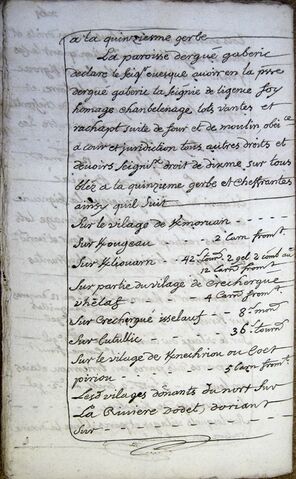 a la quinziesme gerbe
La paroisse dergué gaberic
declare le seigr evesque avoir en la prre
dergué gaberic la seignie de ligence foy
homage chanbelenage, lots, vantes et
rachapt suite de four et de moulin obéice
a cour et juridiction tous autres droits et
devoirs seignrx droit de dixme sur tous
bléz a la quinzieme gerbe et cheffrantes
ainsy quil suit
Sur le vilage de Kmoruan - - -
Sur Kougeau - - - 2 Carn fromt.
Sur Kliouarn - 42 sourds 2 gel 2 comb au
12 carn fromt.
Sur partie du vilage de Crechergue
vhelaf - - 4 Carn fromt.
Sur Crechergue isselauf - 8 mont
Sur Lutullic - - - 36 s. tourn
Sur le vilage de Knechriou ou Coet
piriou - - - 5 Carn fromt.
Lesd vilages donants du nort sur
La Riviere dodet, doriant
Sur - - - -